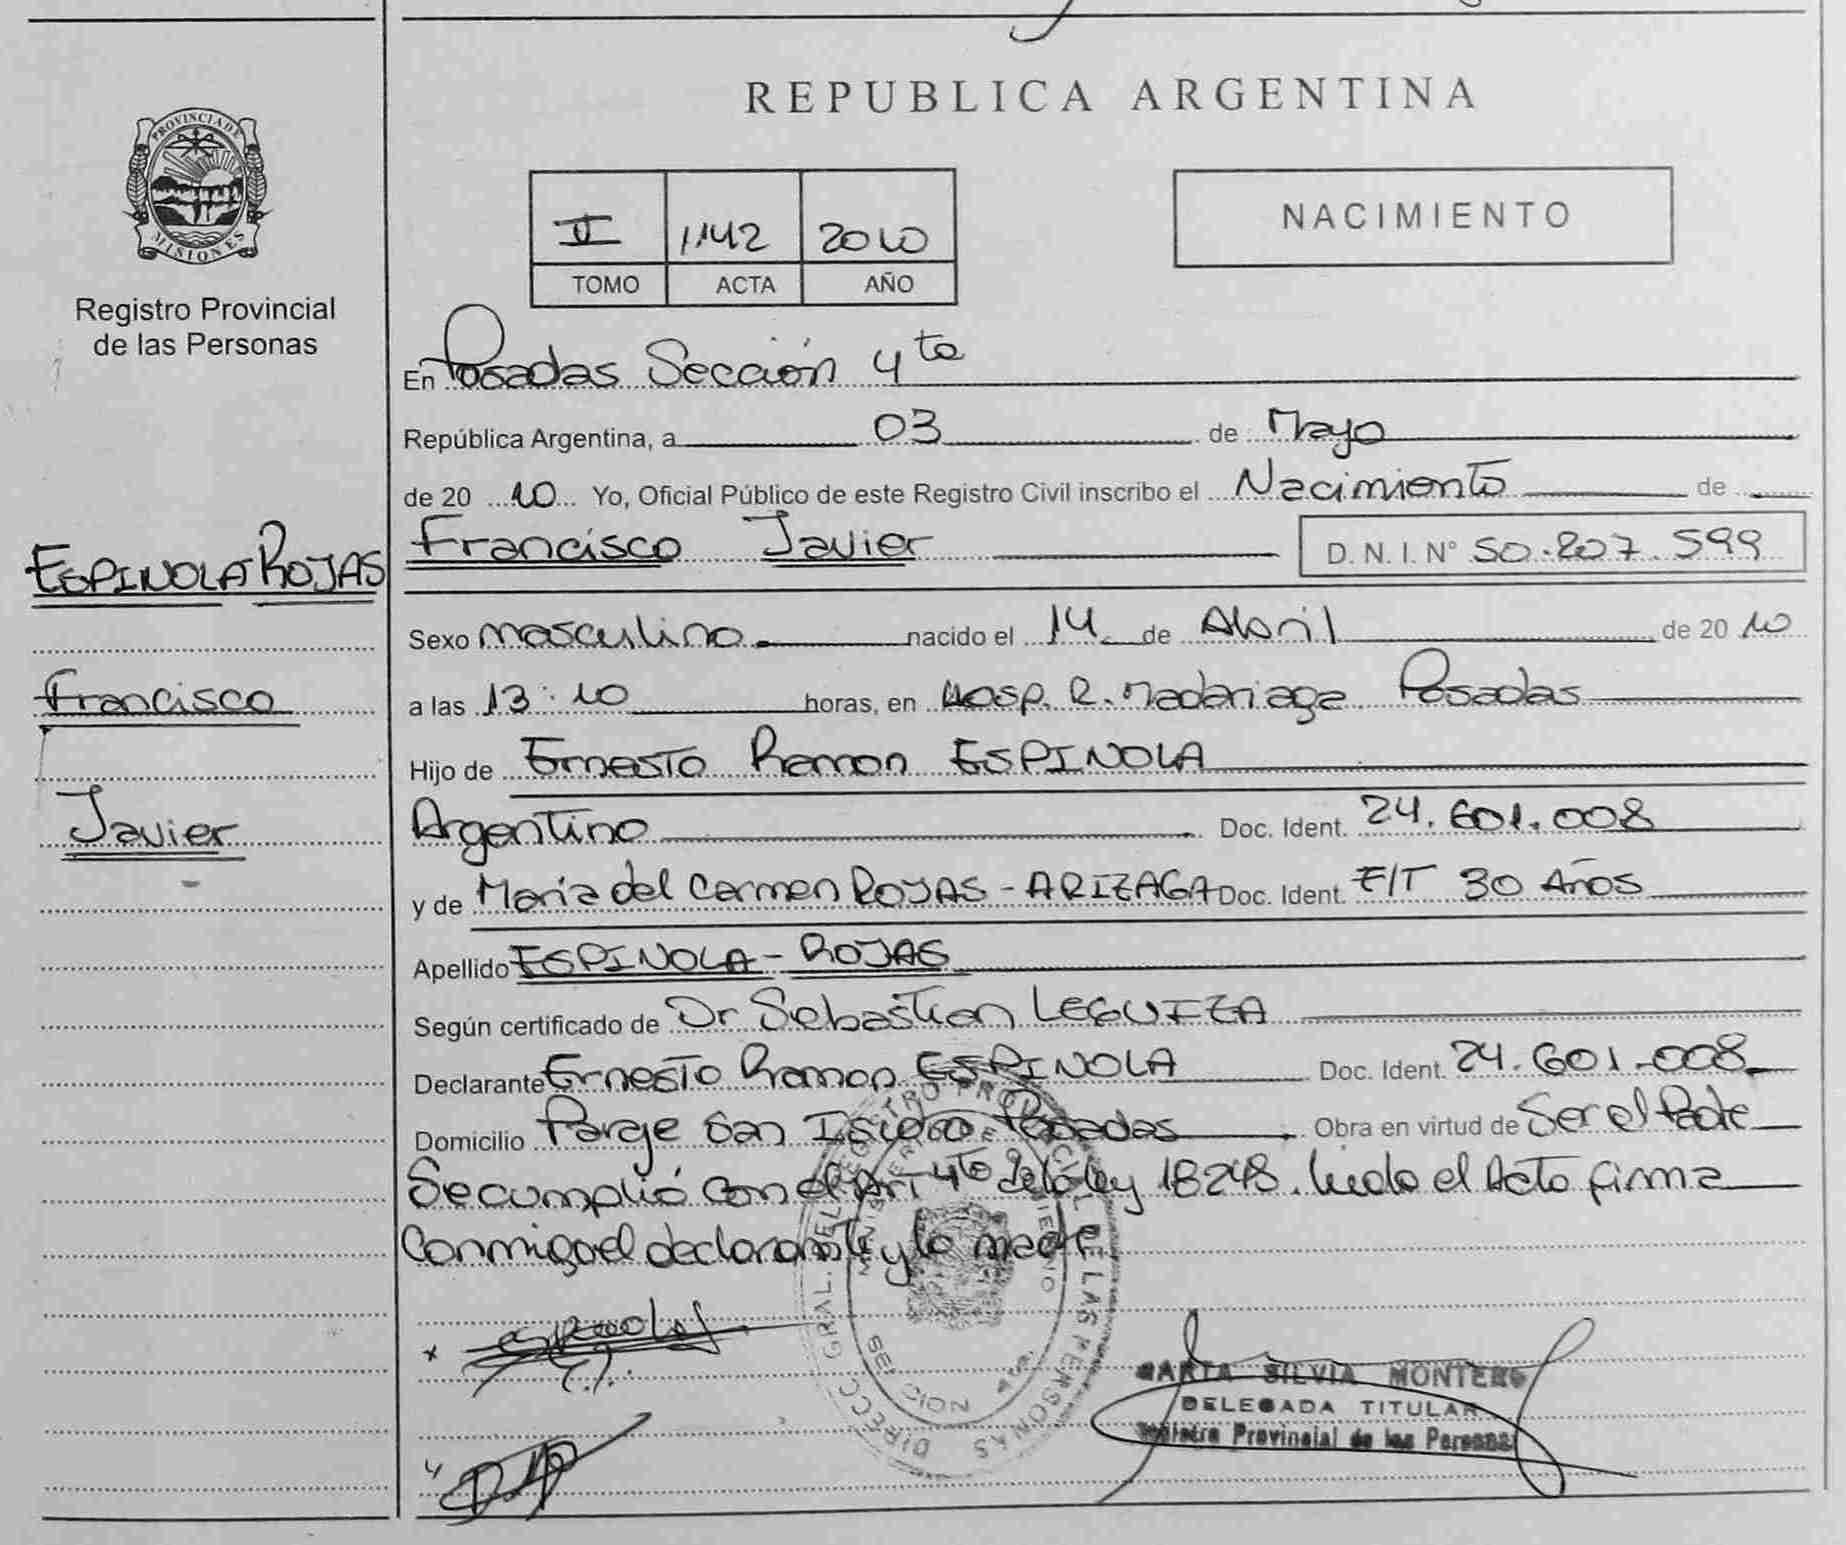 REPUBLICA ARGENTINA
PROVINCIA DE
MISIONES
Registro Provincial
de las Personas
II 1142 2010
TOMO ACTA AÑO
NACIMIENTO
En Posadas Sección 4ta
República Argentina, a 03 de Mayo
de 20 10 Yo, Oficial Público de este Registro Civil inscribo el Nacimiento de
ESPINOLA ROJAS
Francisco
Javier
Francisco Javier D. N. I. N° 50.207.599
Sexo masculino nacido el 14 de Abril de 20 10
a las 13:10 horas, en Hosp. R. Madariaga Posadas
Hijo de Ernesto Ramon ESPINOLA
Argentino Doc. Ident. 24.601.008
y de Maria del Carmen ROJAS - ARIZAGA Doc. Ident. F/T 30 Años
Apellido ESPINOLA - ROJAS
Según certificado de Dr Sebastian LEGUIZA
Declarante Ernesto Ramon ESPINOLA Doc. Ident. 24.601.008
Domicilio Parge San Isidro Posadas Obra en virtud de Ser el Padre
Se cumplió con el Art 4to de la ley 18248. Leida el Acta firma
conmigo el declarante y la madre
DIRECC. GRAL. DEL REGISTRO PROVINCIAL DE LAS PERSONAS
MARTA SILVIA MONTERO
DELEGADA TITULAR
Registro Provincial de las Personas